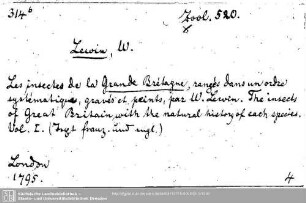 314⁶
Zool. 520.
Lewin, W.
Les insectes de la Grande Bretagne, rangés dans un ordre
systématique, gravés et peints, par W. Lewin. The insects
of Great Britain, with the natural history of each species.
Vol. I. (Text franz. und engl.)
London
1795.
4